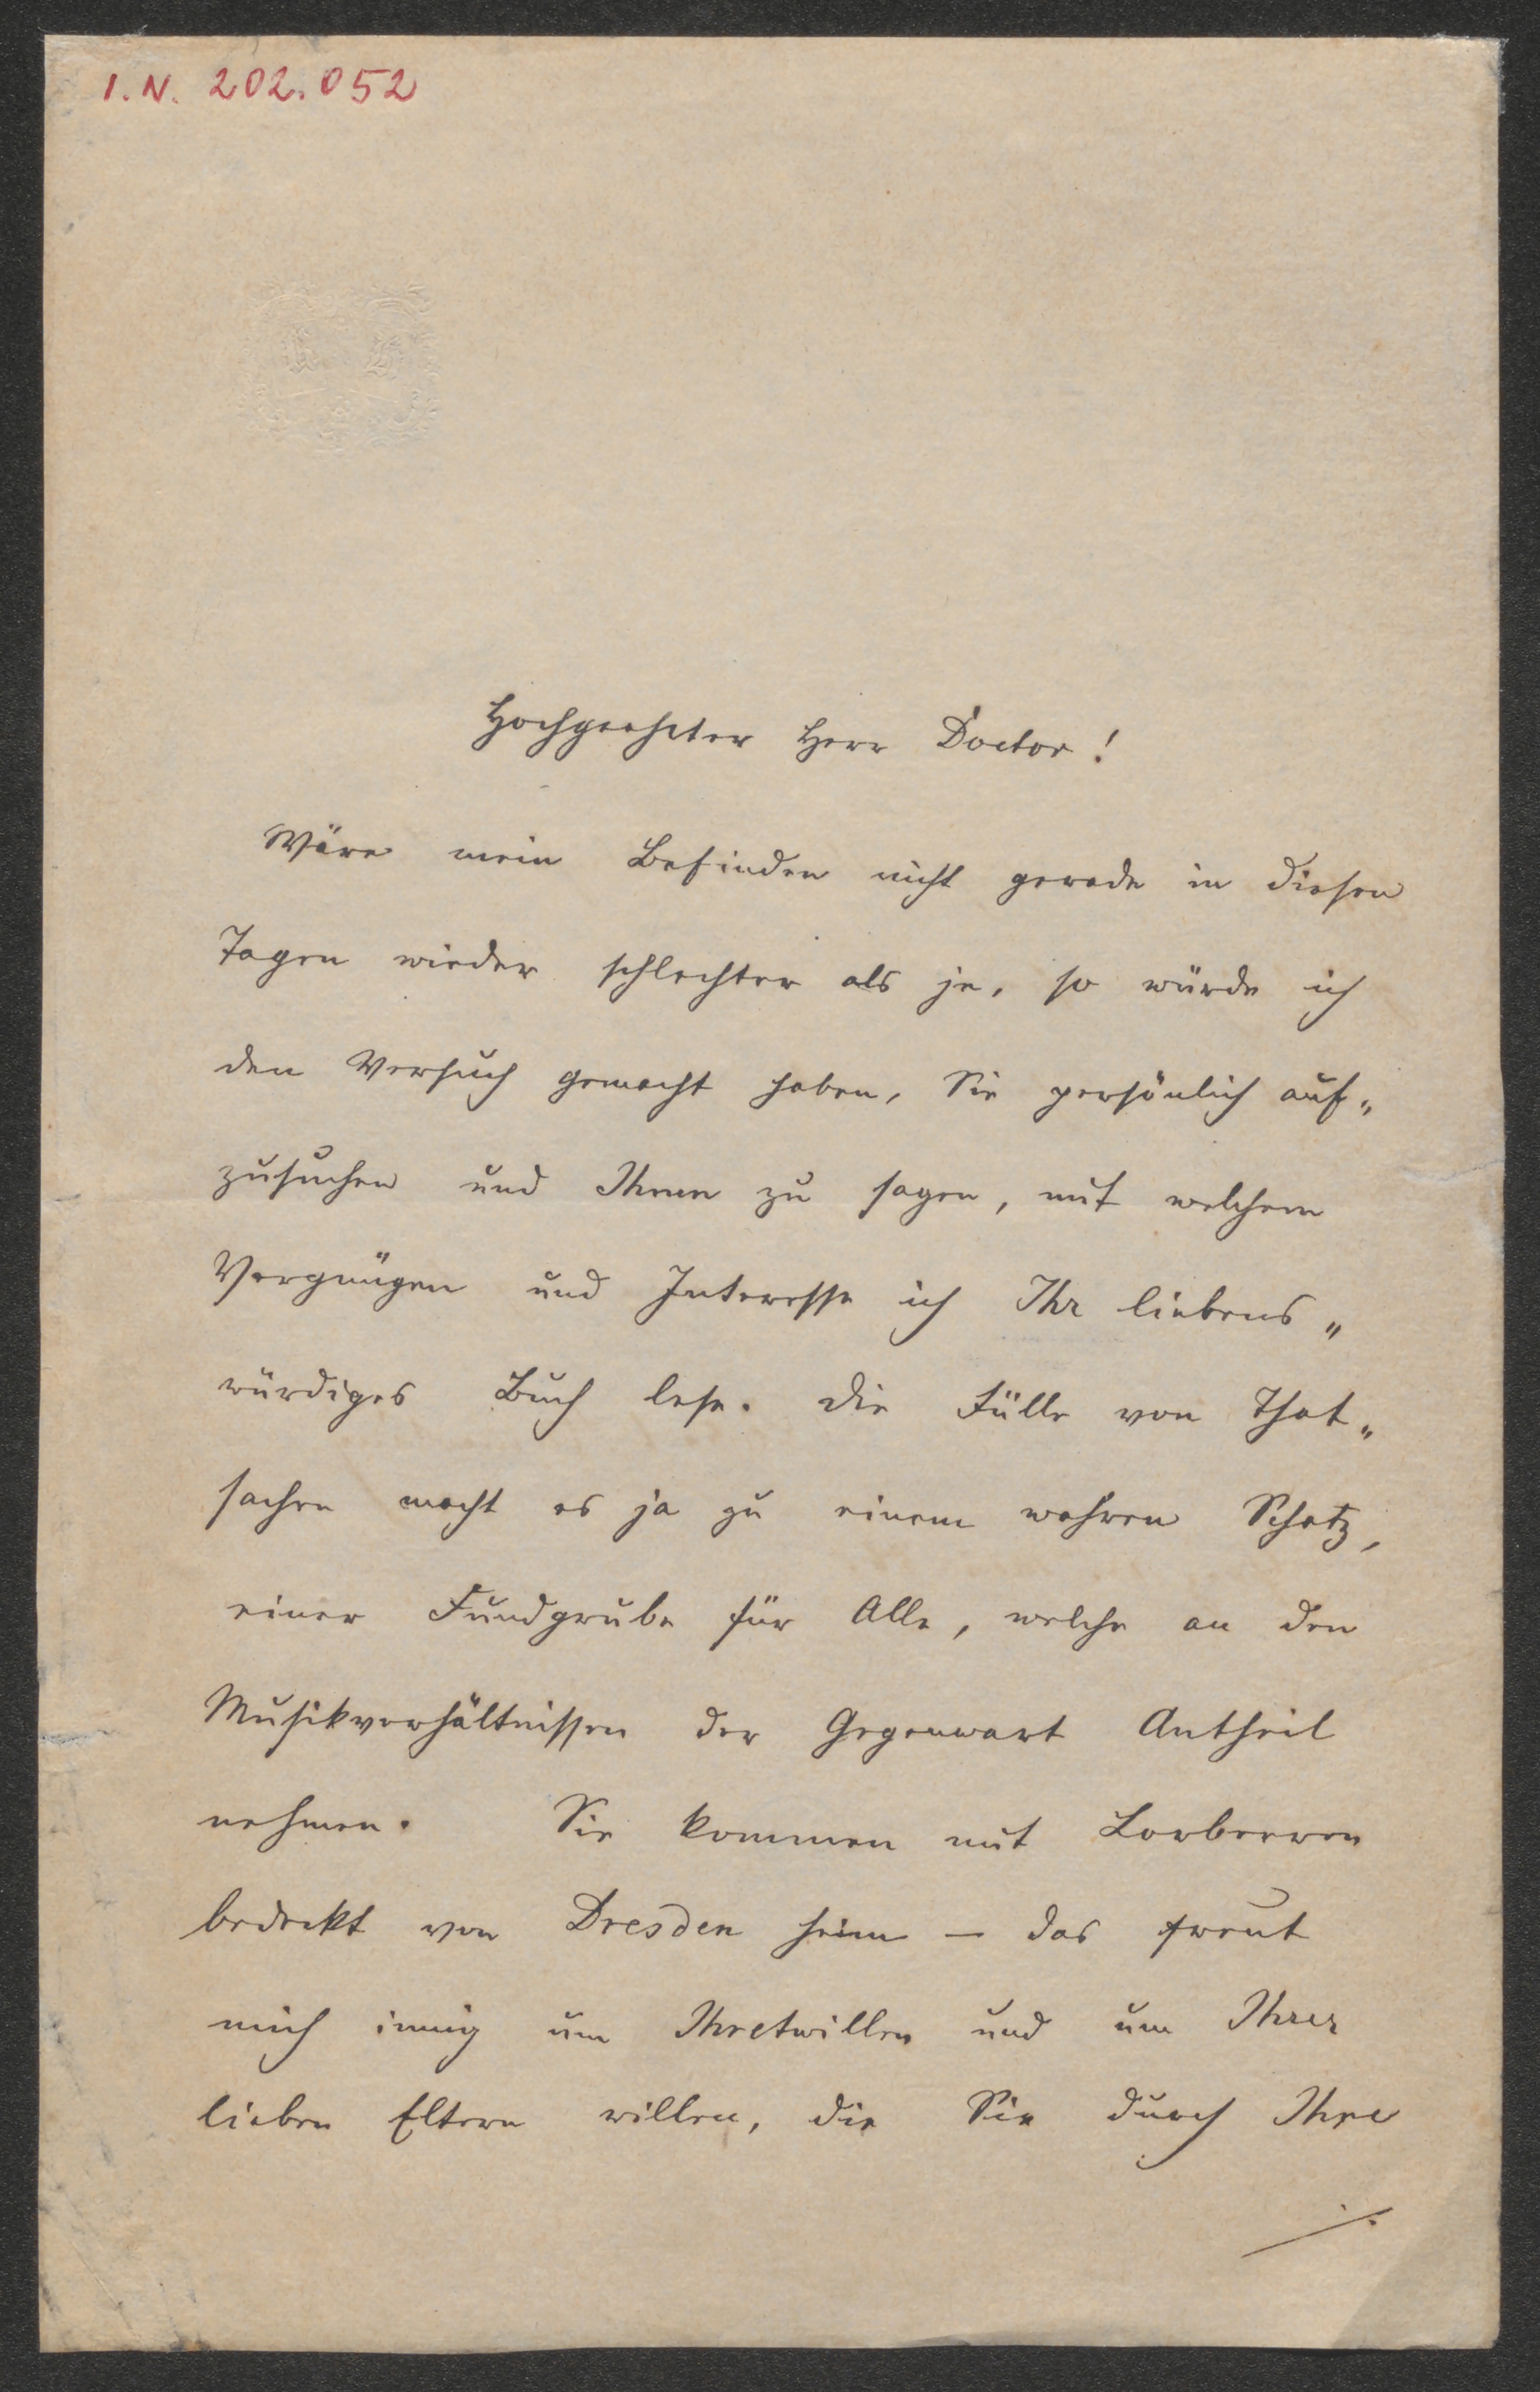 I.N. 202.052
Hochgeehrter Herr Doctor!
Wäre mein Befinden nicht gerade in diesen
Tagen wieder schlechter als je, so würde ich
den Versuch gemacht haben, Sie persönlich auf„
zusuchen und Ihnen zu sagen, mit welchem
Vergnügen und Interesse ich Ihr liebens„
würdiges Buch lese. Die Fülle von That„
sachen macht es ja zu einem wahren Schatz,
einer Fundgrube für Alle, welche an den
Musikverhältnissen der Gegenwart Antheil
nehmen. Sie kommen mit Lorbeeren
bedeckt von Dresden heim – das freut
mich innig um Ihretwillen und um Ihrer
lieben Eltern willen, die Sie durch Ihre
./.